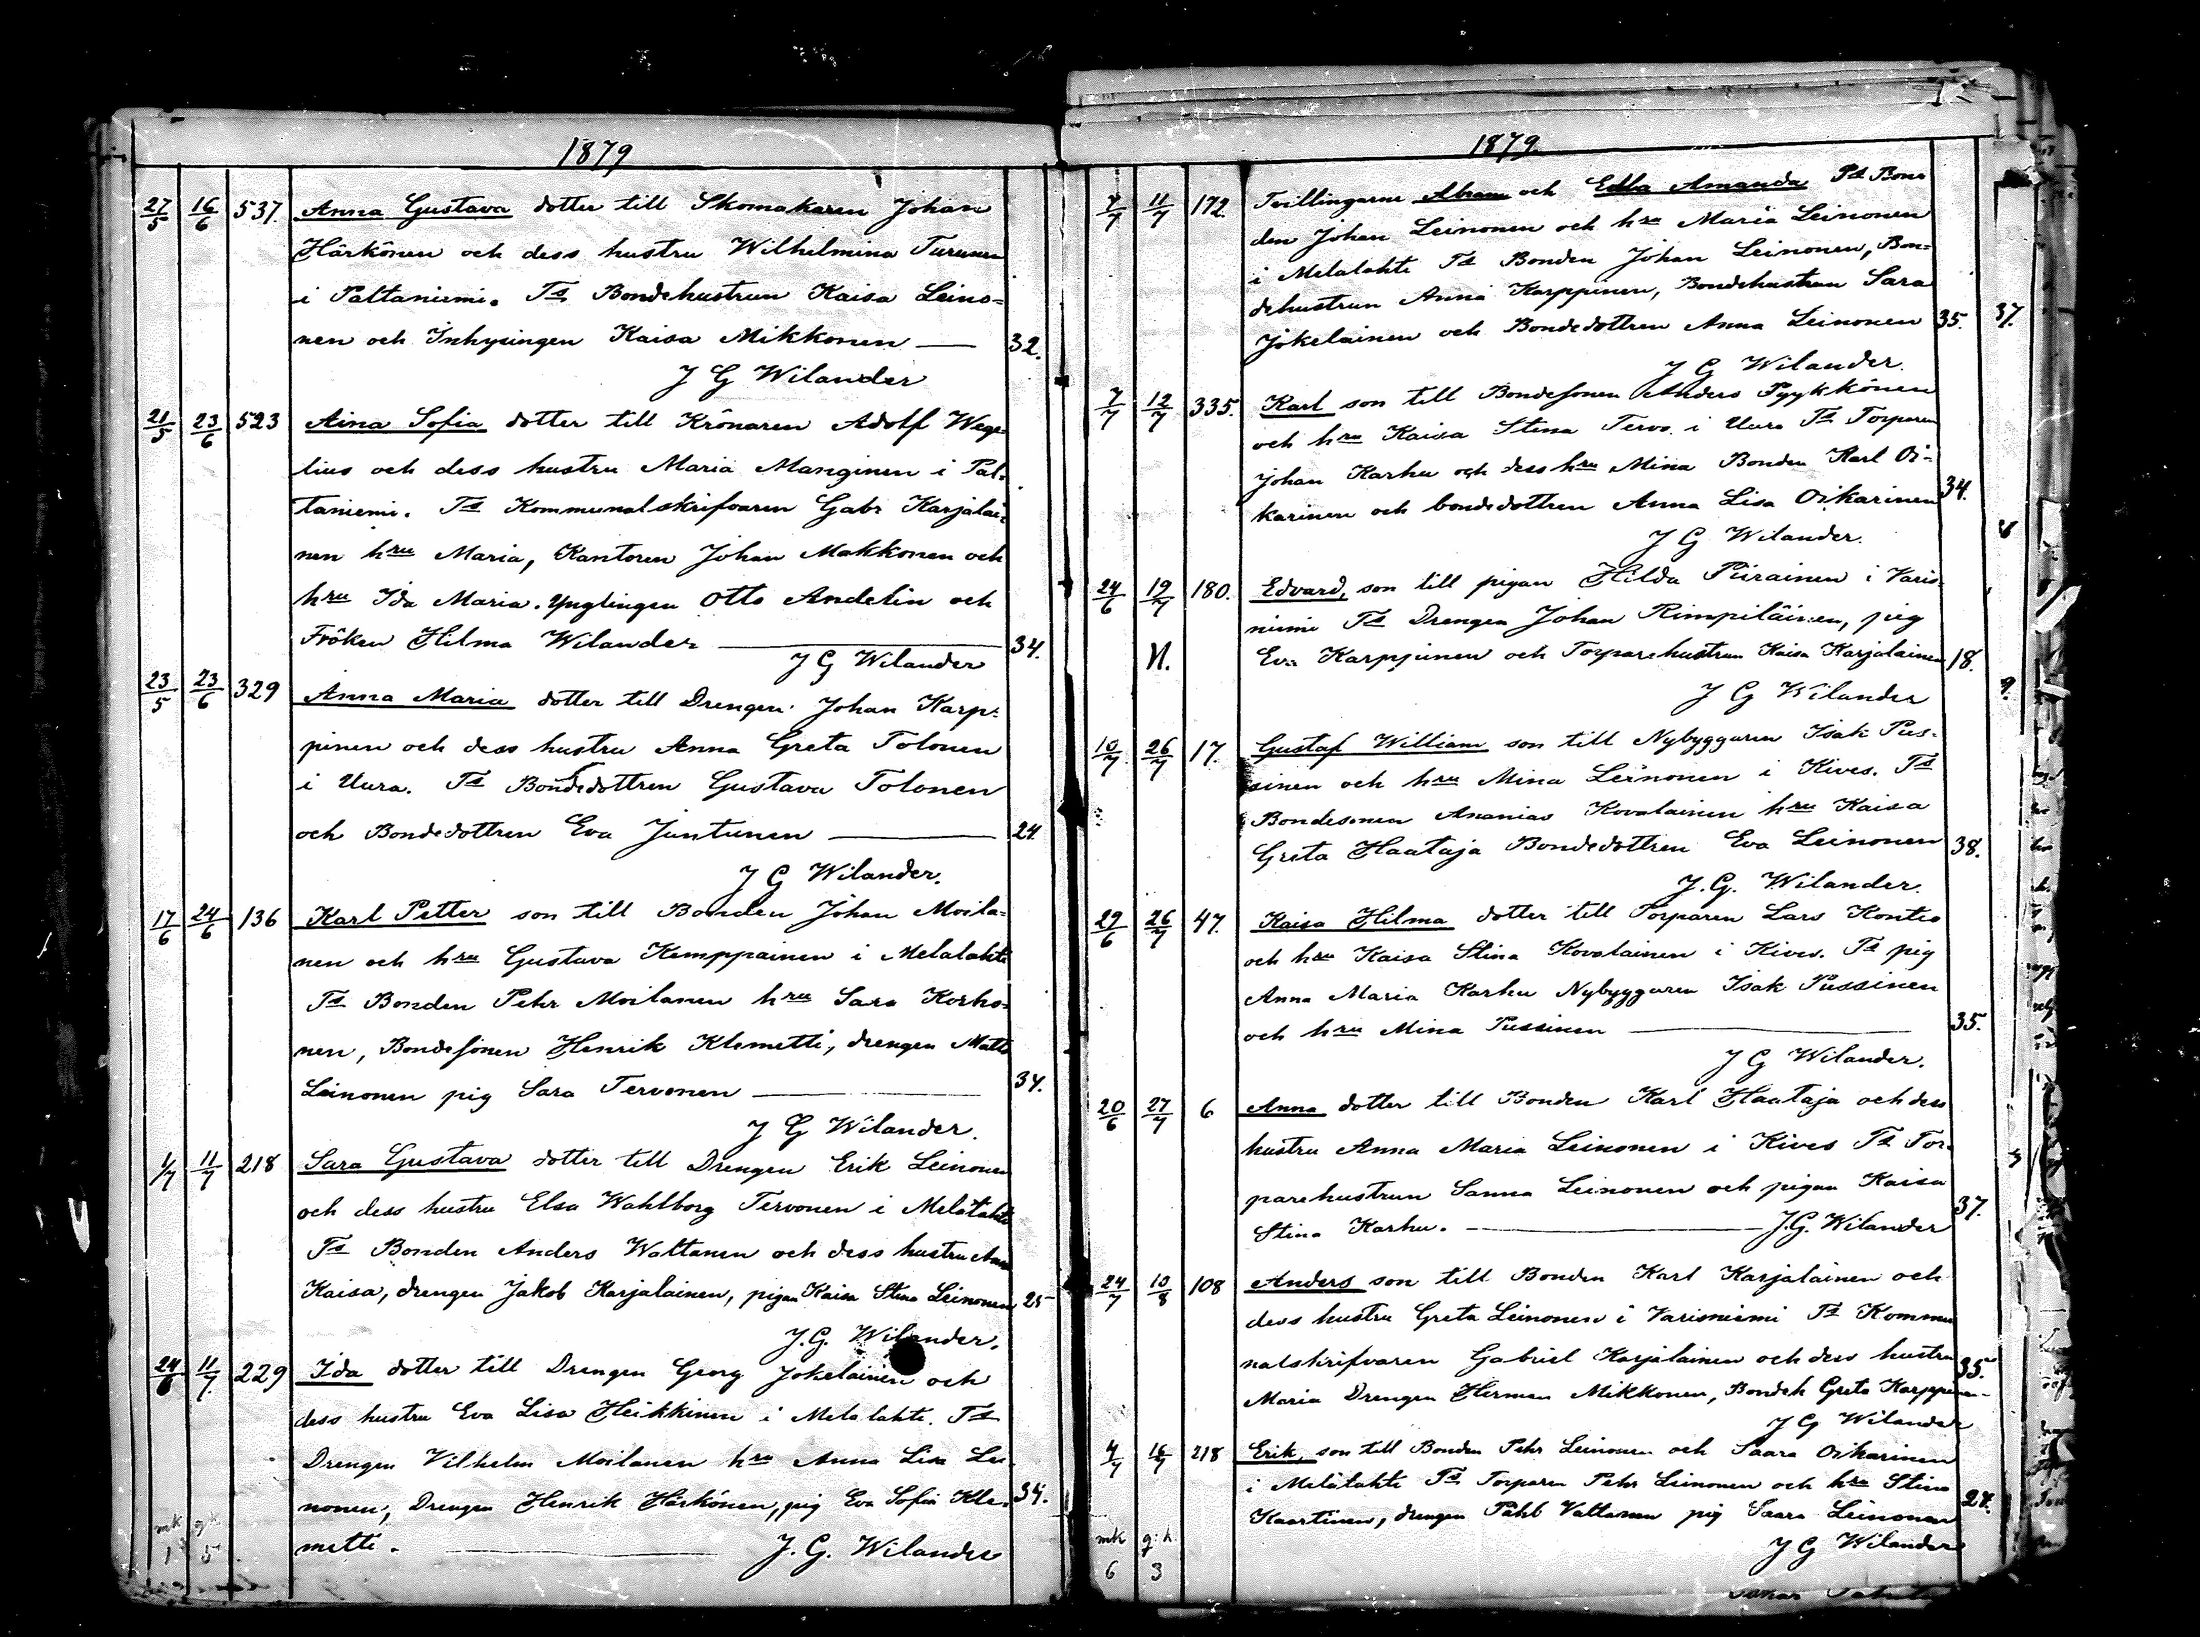 1879
27/5 16/6 537. Anna Gustava dotter till Skomakaren Johan
Härkönen och dess hustru Wilhelmina Turunen
i Paltaniemi. Ts Bondehustrun Kaisa Leino-
nen och Inhysingen Kaisa Mikkonen — 32.
J G Wilander
21/5 23/6 523 Aina Sofia dotter till Krönaren Adolf Wege-
lius och dess hustru Maria Manginen i Pal-
taniemi. Ts Kommunalskrifvaren Gabr Karjalai-
nen hru Maria, Kantoren Johan Makkonen och
hru Ida Maria. Ynglingen Otto Andelin och
Fröken Hilma Wilander — 34.
J G Wilander
23/5 23/6 329 Anna Maria dotter till Drengen Johan Karp-
pinen och dess hustru Anna Greta Tolonen
i Uura. Ts Bondedottren Gustava Tolonen
och Bondedottren Eva Juntunen — 24
J G Wilander.
17/6 24/6 136 Karl Petter son till Bonden Johan Moila-
nen och hru Gustava Kemppainen i Melalahti
Ts Bonden Pehr Moilanen hru Sara Korho-
nen, Bondesonen Henrik Klemetti, drengen Matts
Leinonen pig Sara Tervonen — 34.
J G Wilander.
1/7 11/7 218 Sara Gustava dotter till Drengen Erik Leinonen
och dess hustru Elsa Wahlborg Tervonen i Melalahti
Ts Bonden Anders Waltanen och dess hustru Anna
Kaisa, drengen Jakob Karjalainen, pigan Kaisa Stina Leinonen 25
J. G. Wilander.
24/6 11/7 229 Ida dotter till Drengen Georg Jokelainen och
dess hustru Eva Lisa Heikkinen i Melalahti. Ts
Drengen Vilhelm Moilanen hru Anna Lisa Lei-
nonen, Drengen Henrik Härkönen, pig Eva Sofia Kle- 34.
metti. — J. G. Wilander
mk
1 5
1879
7/7 11/7 172 Tvillingarne Abram och Edla Amanda Ps Bon-
den Johan Leinonen och hru Maria Leinonen
i Melalahti Ts Bonden Johan Leinonen, Bon-
dehustrun Anna Karppinen, Bondehustrun Sara
Jokelainen och Bondedottren Anna Leinonen 35. 37.
J G Wilander.
7/7 12/7 335. Karl son till Bondesonen Anders Pyykkönen
och hru Kaisa Stina Tervo i Uura Ts Torparen
Johan Karhu och dess hru Mina Bonden Karl Oi-
karinen och bondedottren Anna Lisa Oikarinen 34.
J G Wilander.
24/6 19/7 180. Edvard, son till pigan Hilda Piirainen i Varis-
niemi Ts Drengen Johan Rimpiläinen, pig
Eva Karppinen och Torparehustrun Kaisa Karjalainen 18.
J G Wilander
10/7 26/7 17. Gustaf William son till Nybyggaren Isak Pus-
sinen och hru Mina Leinonen i Kives. Ts
Bondesonen Ananias Kovalainen hru Kaisa
Greta Haataja Bondedottren Eva Leinonen 38.
J. G. Wilander.
29/6 26/7 47. Kaisa Hilma dotter till Torparen Lars Kontio
och hru Kaisa Stina Kovalainen i Kives. Ts pig
Anna Maria Karhu Nybyggaren Isak Pussinen
och hru Mina Pussinen — 35.
J G Wilander.
20/6 27/7 6 Anna dotter till Bonden Karl Haataja och dess
hustru Anna Maria Leinonen i Kives Ts Tor-
parehustrun Sanna Leinonen och pigan Kaisa 37.
Stina Karhu. — J. G. Wilander
24/7 10/8 108 Anders son till Bonden Karl Karjalainen och
dess hustru Greta Leinonen i Varisniemi Ts Kommu-
nalskrifvaren Gabriel Karjalainen och dess hustru 35.
Maria Drengen Herman Mikkonen, Bondeh Greta Karppinen
J G Wilander
4/7 16/7 218 Erik, son till Bonden Pehr Leinonen och Saara Oikarinen
i Melalahti Ts Torparen Pehr Leinonen och hru Stina
Kaartinen, drengen Vattanen pig Saara Leinonen
J G Wilander
mk
6 3